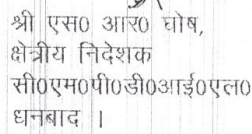 श्री एस0 आर0 घोष,
क्षेत्रीय निदेशक
सी0एम0पी0डी0आई0एल0
धनबाद ।